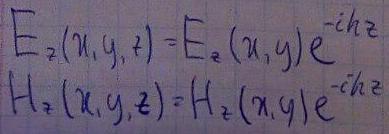 E_z(x,y,z)=E_z(x,y)e^{-ihz}
H_z(x,y,z)=H_z(x,y)e^{-ihz}